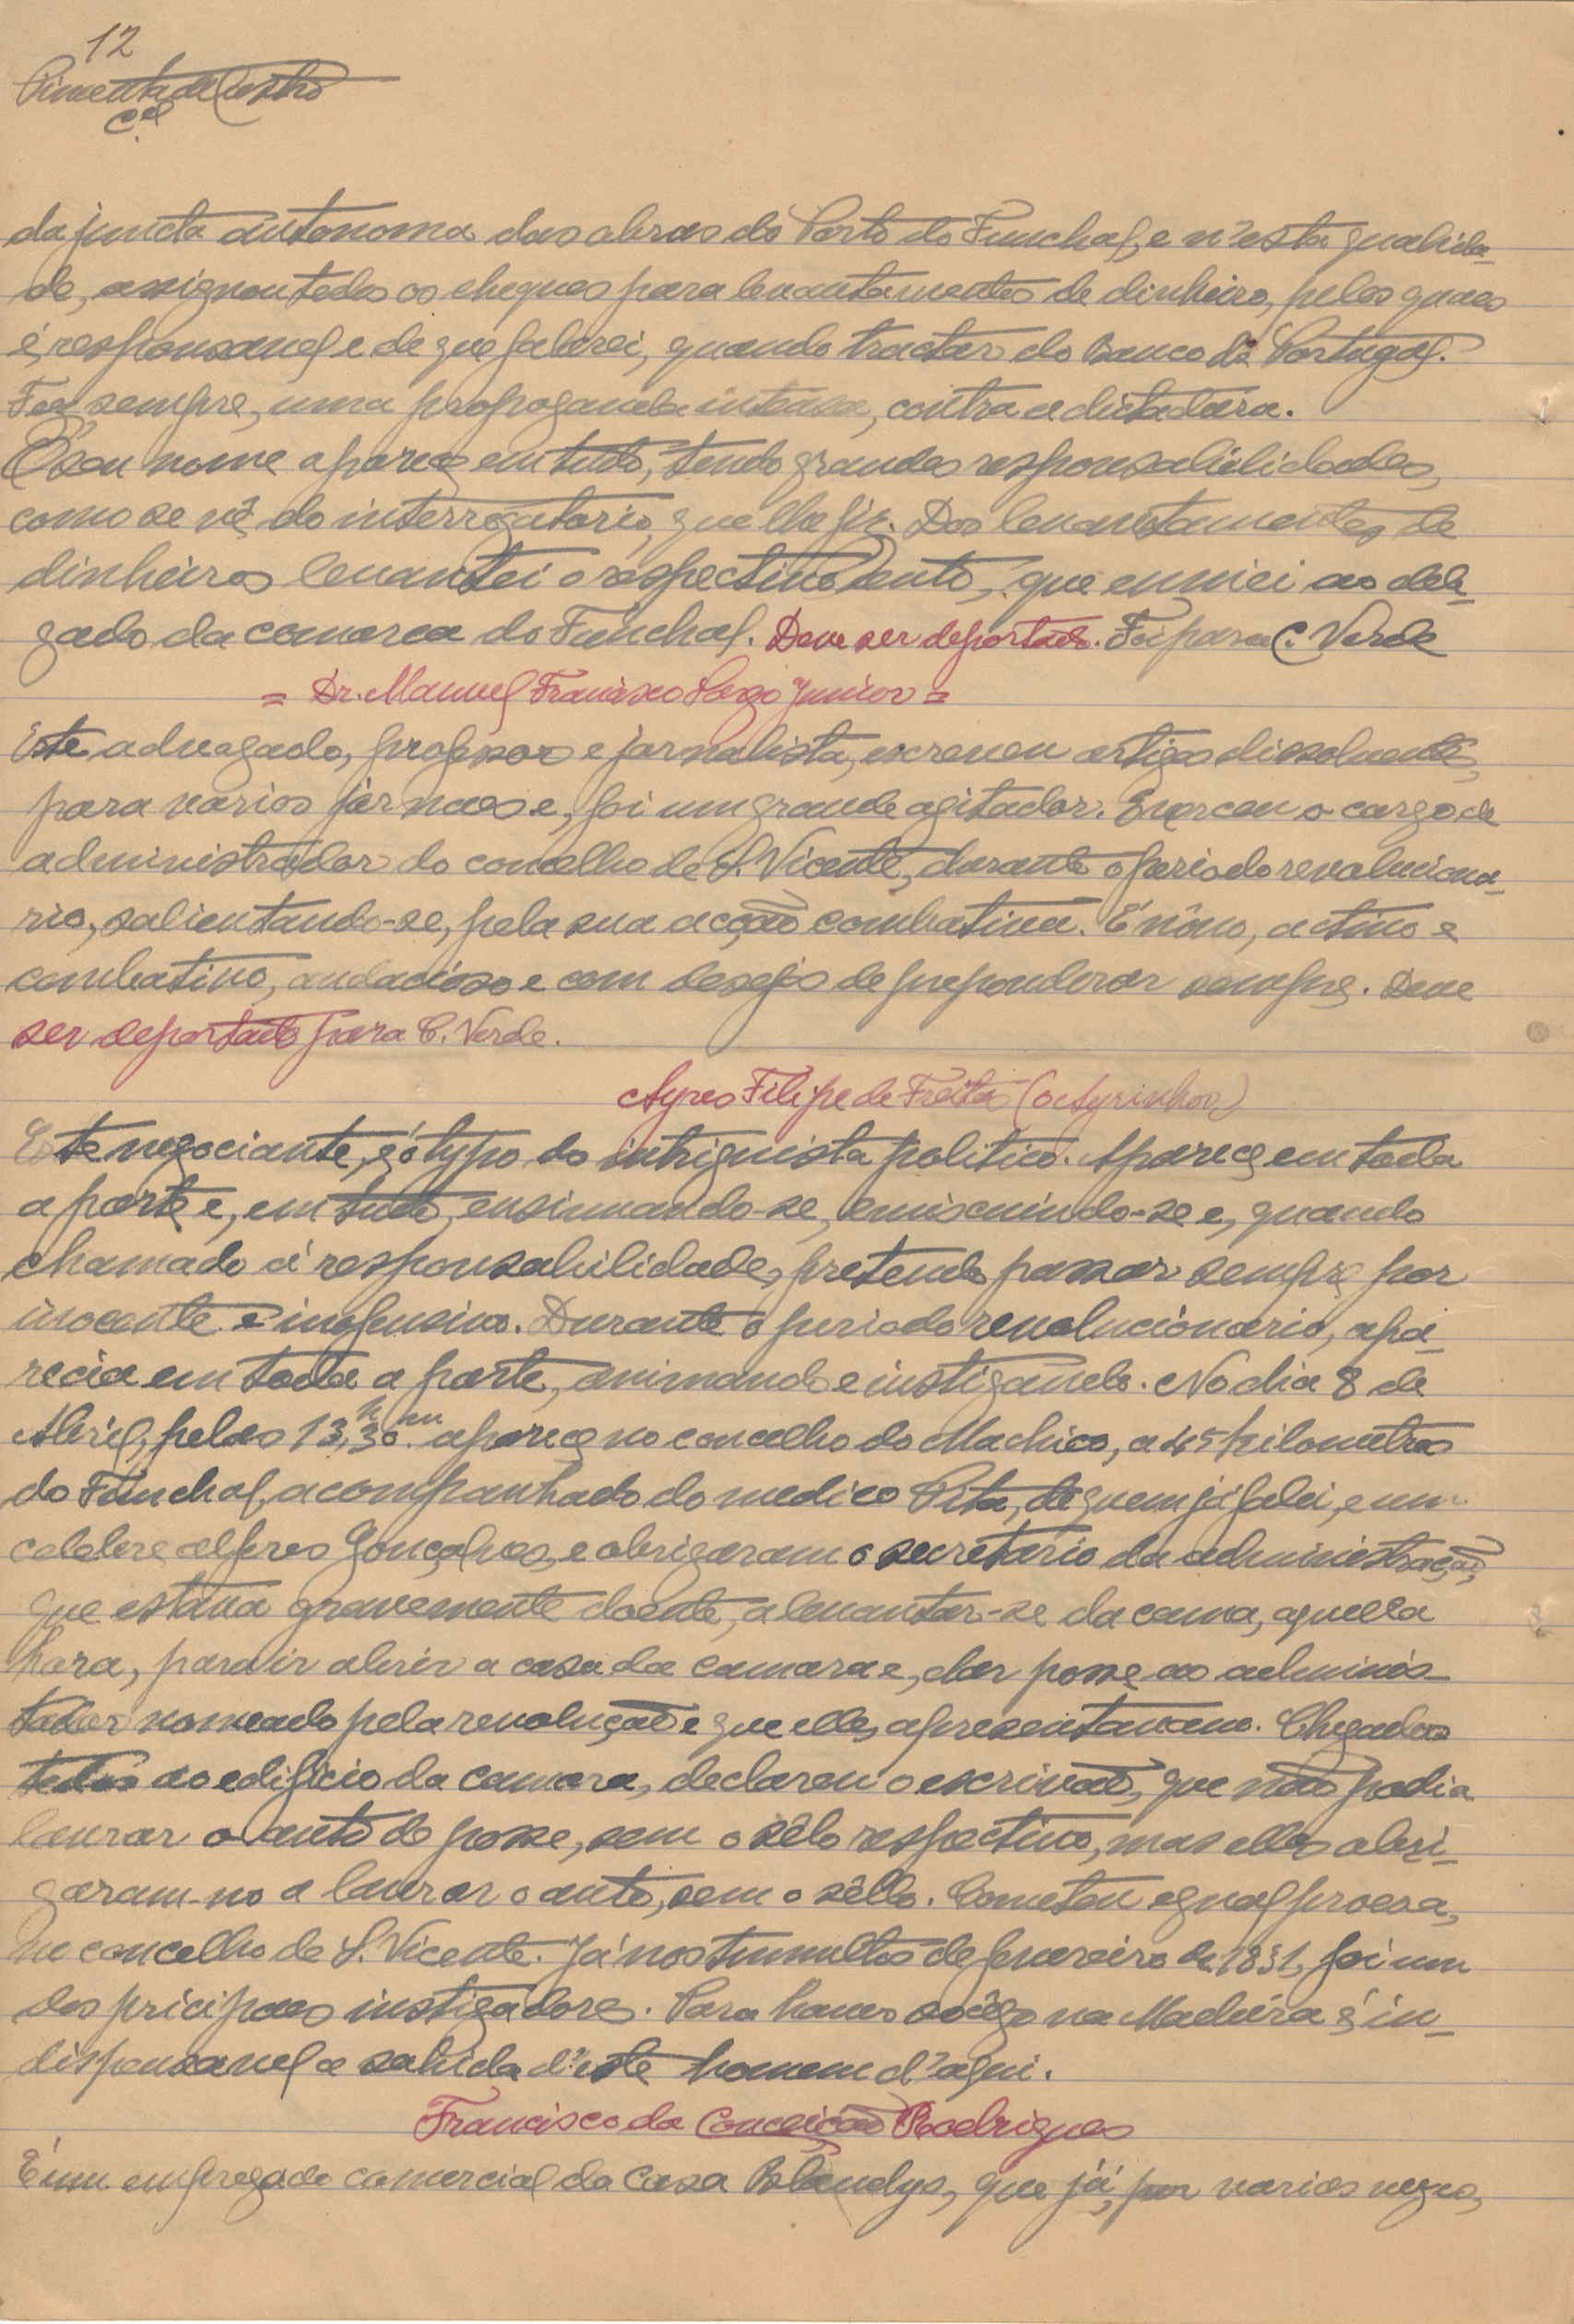 12
Pimenta de Castro
C.el
da juncta autonoma das obras do Porto do Funchal, e n'esta qualida-
de, assignou todos os cheques para levantamentos de dinheiro, pelos quaes
é, responsavel e de que falarei, quando tractar do Banco de Portugal.
Fez sempre, uma propoganda intensa, contra a dictadura.
O seu nome aparece em tudo, tendo grandes responsabilidades,
como se vê, do interrogatorio, que lhe fiz. Dos levantamentos de
dinheiros levantei o respectivo auto, que enviei ao dele-
gado da comarca do Funchal. Deve ser deportado. Foi para C. Verde
= Dr. Manuel Francisco Junior =
Este advogado, professor e jornalista, escreveu artigos dissolventes,
para varios jornaes e, foi um grande agitador. Exerceu o cargo de
administrador do concelho de S. Vicente, durante o periodo revoluciona-
rio, salientando-se, pela sua acção combativa. É nôvo, activo e
combativo, audacioso e com desejo de preponderar sempre. Deve
ser deportado para C. Verde.
Ayres Filipe de Freitas (o Ayrinhos)
Este negociante, é o typo do intriguista politico. Aparece em toda
a parte e, em tudo, ensinuando-se, emiscuindo-se e, quando
chamado á responsabilidade, pretende passar sempre por
inocente e inofensivo. Durante o periodo revolucionario, apa-
recia em toda a parte, animando e instigando. No dia 8 de
Abril, pelas 13,h 30.m aparece no concelho do Machico, a 45 kilometros
do Funchal, acompanhado do medico Pita, de quem já falei, e um
celebre alferes Gonçalves, e obrigaram o secretario da administração,
que estava gravemente doente, a levantar-se da cama, aquella
hora, para ir abrir a casa da camara e, dar posse ao adminis-
tador nomeado pela revolução e que elles, apresentavam. Chegados
todos ao edificio da camara, declarou o escrivão, que não podia
lavrar o auto de posse, sem o sêlo respectivo, mas elles obri-
garam-no a lavrar o auto, sem o sêllo. Cometeu egual proesa,
no concelho de S. Vicente. Já nos tumultos de fevereiro de 1931, foi um
dos pricipaes instigadores. Para haver socêgo na Madeira é in-
dispensavel a sahida d'este homem d'aqui.
Francisco da Conceição Rodrigues
É um empregado comercial da Casa Blandys, que já, por varias vezes,